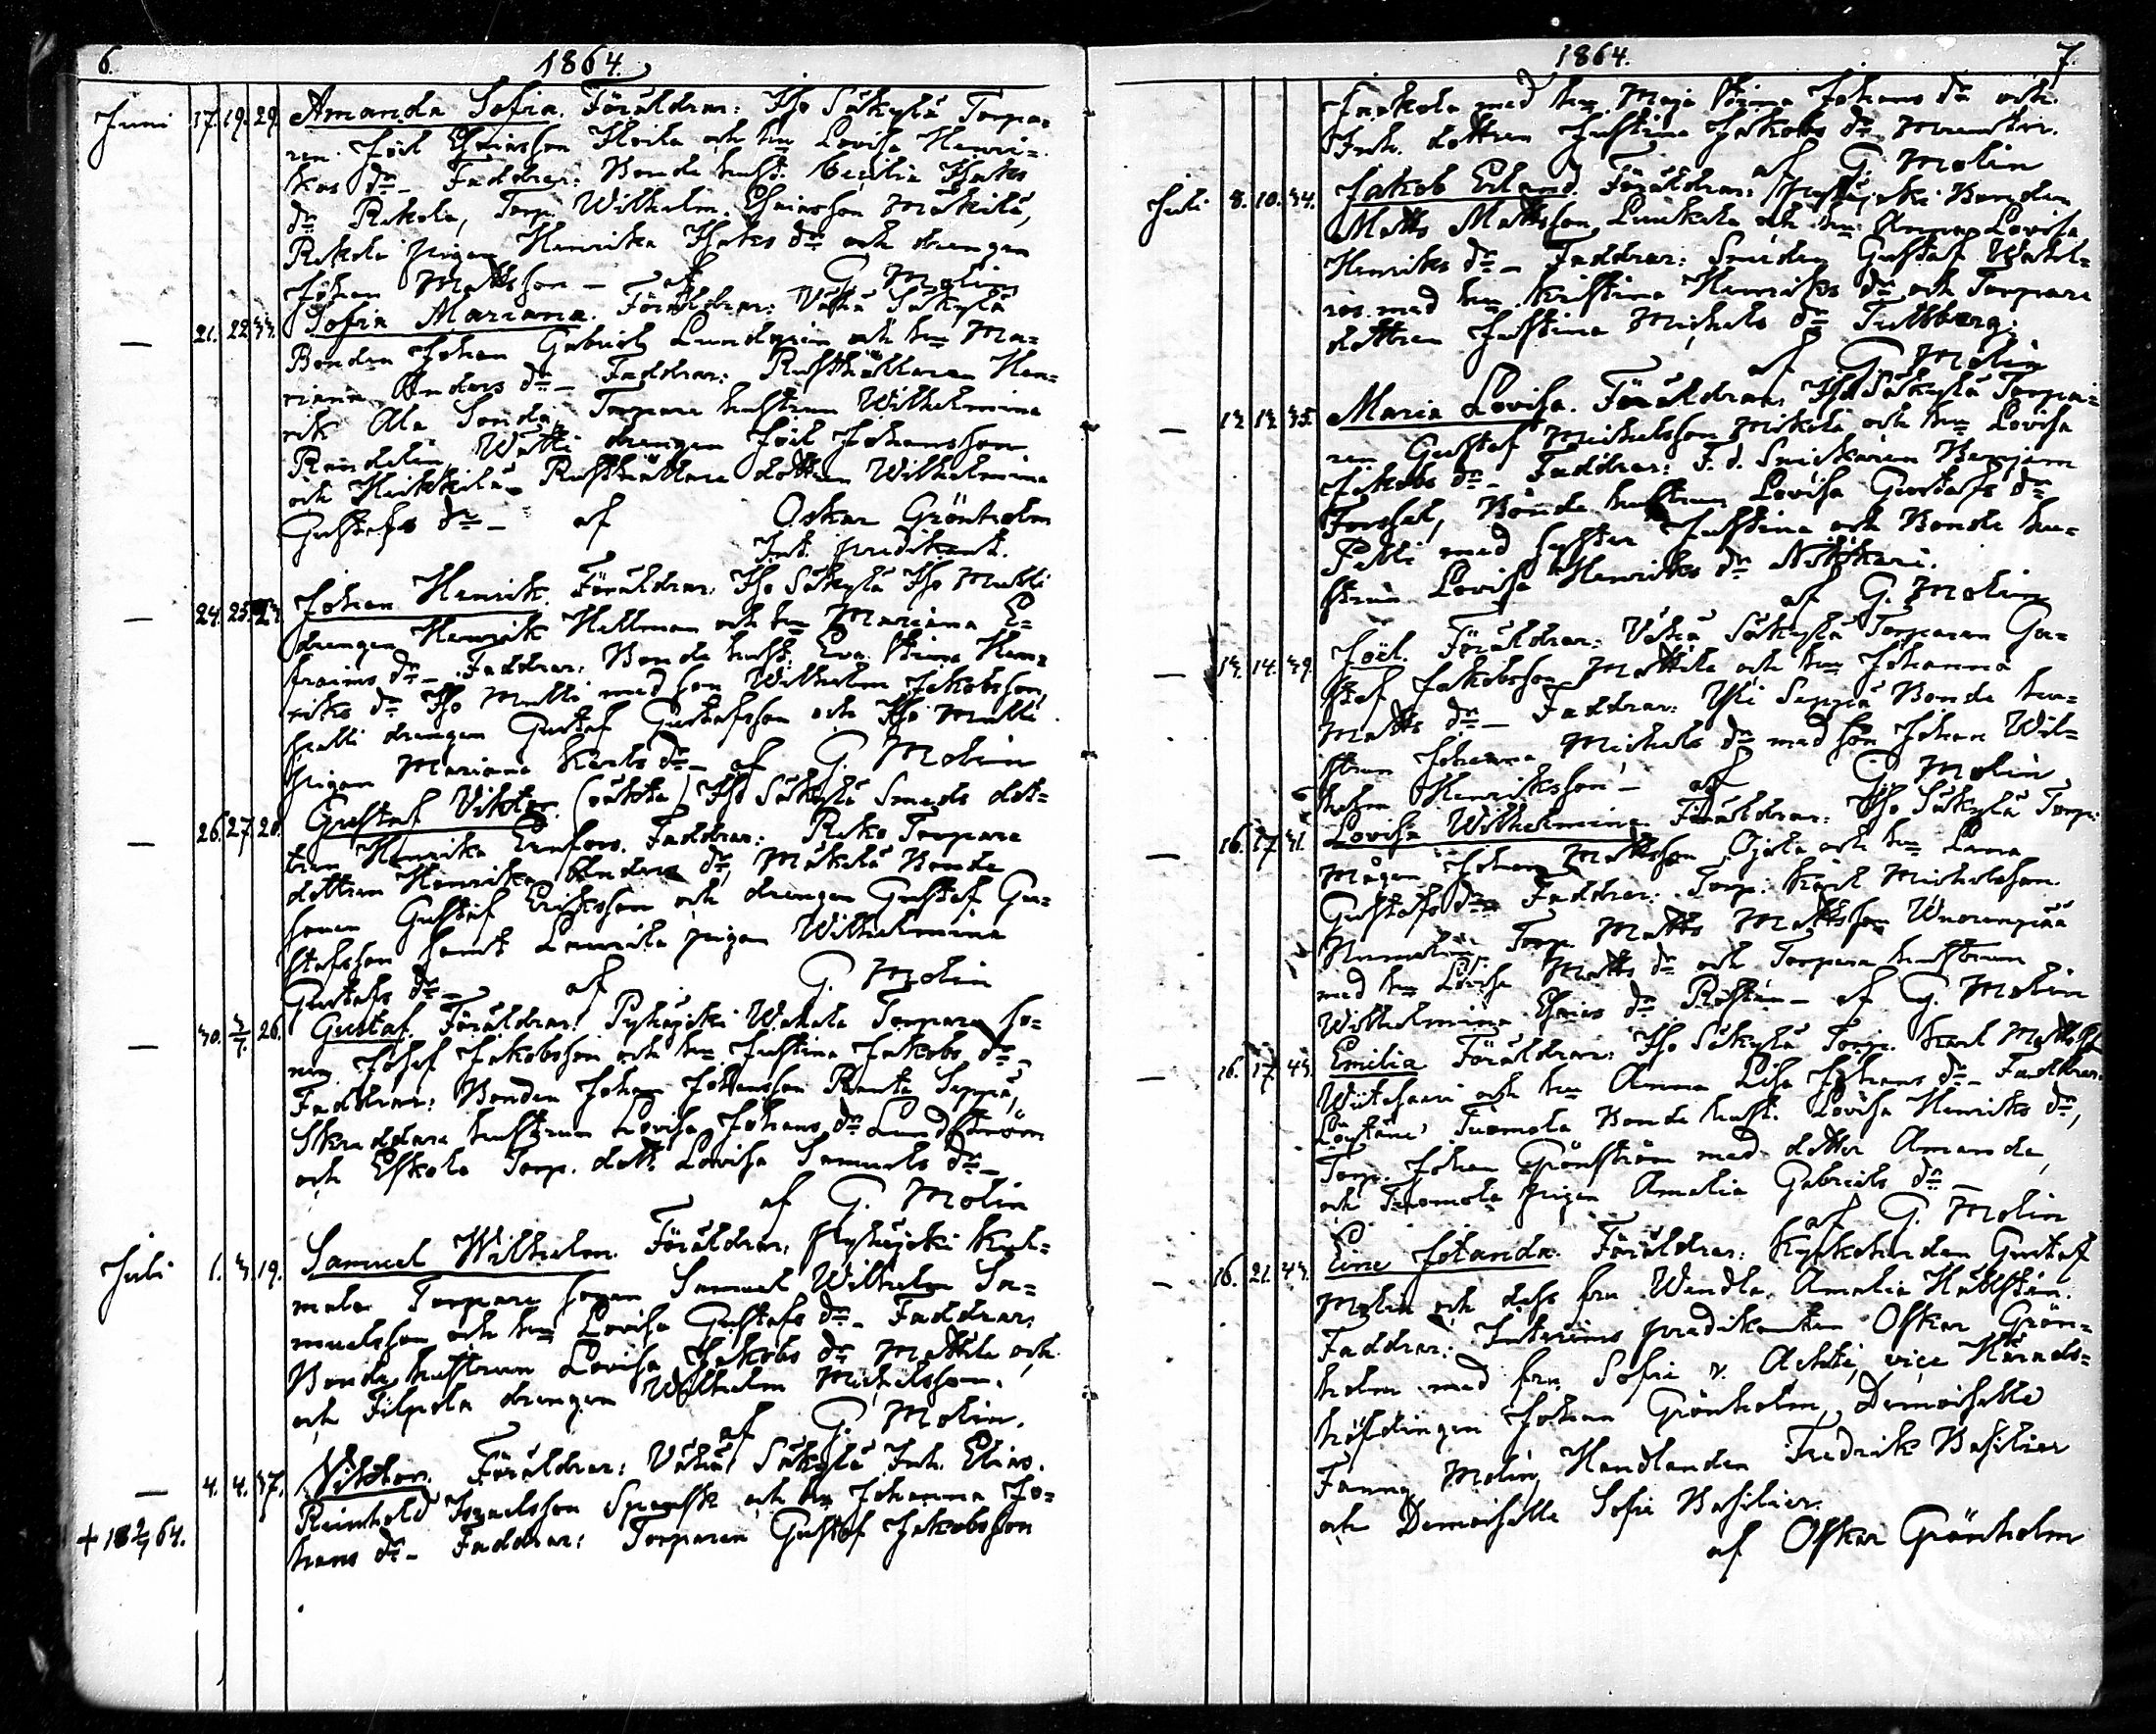 6. 1864.
Juni 17. 19. 29. Amanda Sofia. Föräldrar: Iso Säkylä Torpa-
ren Joel Esaiasson Heila och hu Lovisa Henri-
kas dr_ Faddrar: Bonde hust. Cecilia Isaks
dr Rekola, Torp. Wilhelm Esaiasson Mäkilä,
Rekola pigan Henrika Isaks dr och drengen
Johan Mattsson – af G. Molin
— 21. 22. Sofia Mariana. Föräldrar: Vähä Säkylä
Bonden Johan Gabriel Lundgrén och hu Ma-
riana Anders dr_ Faddrar: Rusthållaren Hen-
rik Ala Sonda, Torpare hustrun Wilhelmina
Randelin, Watti drengen Joel Johansson
och Heikkilä Rusthållare dottren Wilhelmina
Gustafs dr_ af Oskar Grönholm
Int. predikant.
— 24. 25. Johan Henrik. Föräldrar: Iso Säkylä Iso Mulli
drengen Henrik Hellman och hu Mariana E-
fraims dr_ Faddrar: Bonde hust. Eva Stina Hen-
riks dr Iso Mulli med son Wilhelm Jakobsson,
drengen Gustaf Gustafsson och Iso Mulli
pigan Mariana Karls dr_ af G. Molin
— 26. 27. 20. Gustaf Viktor. (oäkta) Iso Säkylä Smeds dot-
tren Henrika Enefors. Faddrar: Reko Torpare
dottren Henrika Anders dr, Mäkilä Bonde
sonen Gustaf Eriksson och drengen Gustaf Gu-
stafsson samt Laurila pigan Wilhelmina
Gustafs dr_ af G. Molin
— 30. 3/7. 26. Gustaf. Föräldrar: Pyhäjoki Torpare so-
nen Josef Jakobsson och hu Justina Jakobs dr_
Faddrar: Bonden Johan Johansson Ranta Seppä,
Skraddare hustrun Lovisa Johans dr Lundström
och Eskola Torp. dott. Lovisa Samuels dr_
af G. Molin
Juli 1. 3. 19. Samuel Wilhelm. Föräldrar: Pyhäjoki Kul-
mala Torpare sonen Samuel Wilhelm Sa-
muelsson och hu Lovisa Gustafs dr_ Faddrar:
Bonde hustrun Lovisa Jakobs dr Mattila och
och Filpola drengen Wilhelm Michelsson.
af G. Molin.
— 4. 4. 37. Viktor. Föräldrar: Vähä Säkylä Inh. Elias
Reinhold Israelsson och hu Johanna Jo-
hans dr_ Faddrar: Torparen Gustaf Jakobsson
1864. 7.
med hu Maja Stina Johans dr och
Inh. dottren Justina Jakobs dr
af G. Molin
Juli 8. 10. 34. Jakob Erland. Föräldrar: Pyhäjoki Bonden
Matts Mattsson och hu Anna Lovisa
Henriks dr_ Faddrar: Smeden Gustaf
med hu Kristina Henriks dr och Torpare
dottren Justina Michels dr Tullberg.
af G. Molin
— 12. 13. 35. Maria Lovisa. Föräldrar: Iso Säkylä Torpa-
ren Gustaf Michelsson Mikola och hu Lovisa
Jakobs dr_ Faddrar: F.d. Snickaren Benjam
Forssel, Bonde hustrun Lovisa Gustafs dr
Pelli med syster Justina och Bonde hu-
strun Lovisa Henriks dr
af G. Molin
— 13. 14. 39. Joel. Föräldrar: Vähä Säkylä Torparen Gu-
staf Jakobsson Mattila och hu Johanna
Matts dr_ Faddrar: Yli Seppä Bonde hu-
strun Johanna Michels dr med son Johan Wil-
helm Henriksson – af G. Molin
— 16. 17. 41. Lovisa Wilhelmina. Föräldrar: Iso Säkylä Torp.
mågen Johan Mattsson Ojala och hu Lena
Gustafs dr_ Faddrar: Torp. Karl Michelsson
Torp. Matts Mattsson Vuorenpää
med hu Lovisa Matts dr och Torpare hustrun
Wilhelmina Esaias dr af G. Molin
— 16. 17. 43. Emilia Föräldrar: Iso Säkylä Torp. Karl Mattsson
och hu Anna Lisa Johans dr_ Faddrar:
Tuomola Bonde hust. Lovisa Henriks dr,
Torp. Johan Grönström med dotter Amanda,
och Tuomola pigan Amalia Gabriels dr_
af G. Molin
— 16. 21. 43. Eine Jolanda. Föräldrar: Kyrkoherden Gustaf
Molin och dess fru Wendla Amalia Hällsten.
Faddrar: Interims predikanten Oskar Grön-
holm med fru Sofia v. Achté, vice Härads-
höfdingen Johan Grönholm, Demoiselle
Fanny Molin, Handlanden Fredrik Basilier
och Demoiselle Sofie Basilier.
af Oskar Grönholm